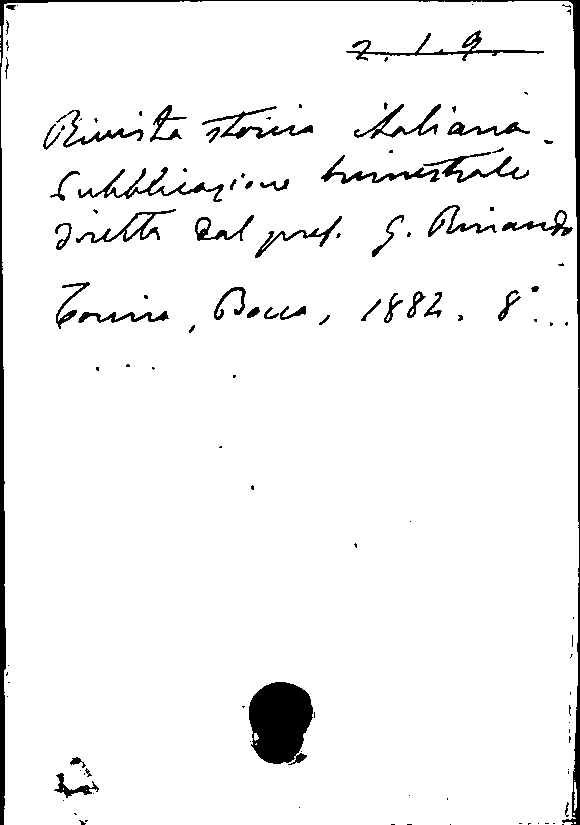 2.1.9.
Rivista storica italiana.
Pubblicazione trimestrale
diretta dal prof. C. Rinaudo
Torino, Bocca, 1884. 8° ...